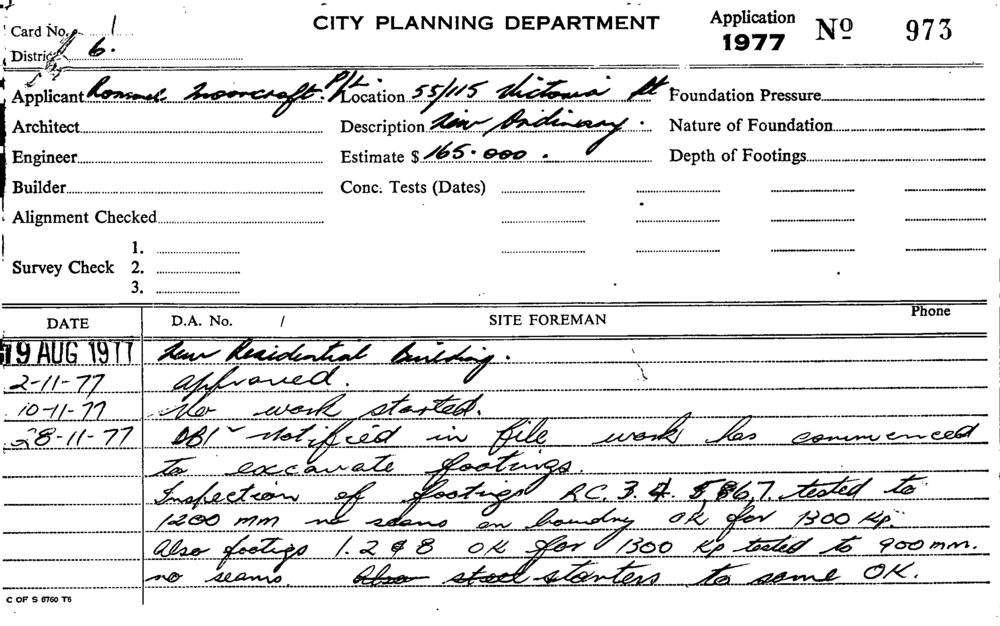 Card No. 1
CITY PLANNING DEPARTMENT
Application
1977
No 973
District 6.
Applicant Mooncraft P/L Location 55/115 Victoria St Foundation Pressure
Architect Description New Ordinary. Nature of Foundation
Engineer Estimate $ 165.000. Depth of Footings
Builder Conc. Tests (Dates)
Alignment Checked
1.
Survey Check 2.
3.
DATE D.A. No. / SITE FOREMAN Phone
19 AUG 1977 New Residential Building.
2-11-77 approved.
10-11-77 No work started.
28-11-77 DBI notified in file work has commenced
to excavate footings.
Inspection of footings R.C. 3. 4. 5, 6, 7. tested to
1200 mm no seams on boundry OK for 1300 Kp.
Also footigs 1. 2 & 8 OK for 1300 Kp tested to 900 mm.
no seams. Also steel starters to same OK.
C OF S 6760 T6